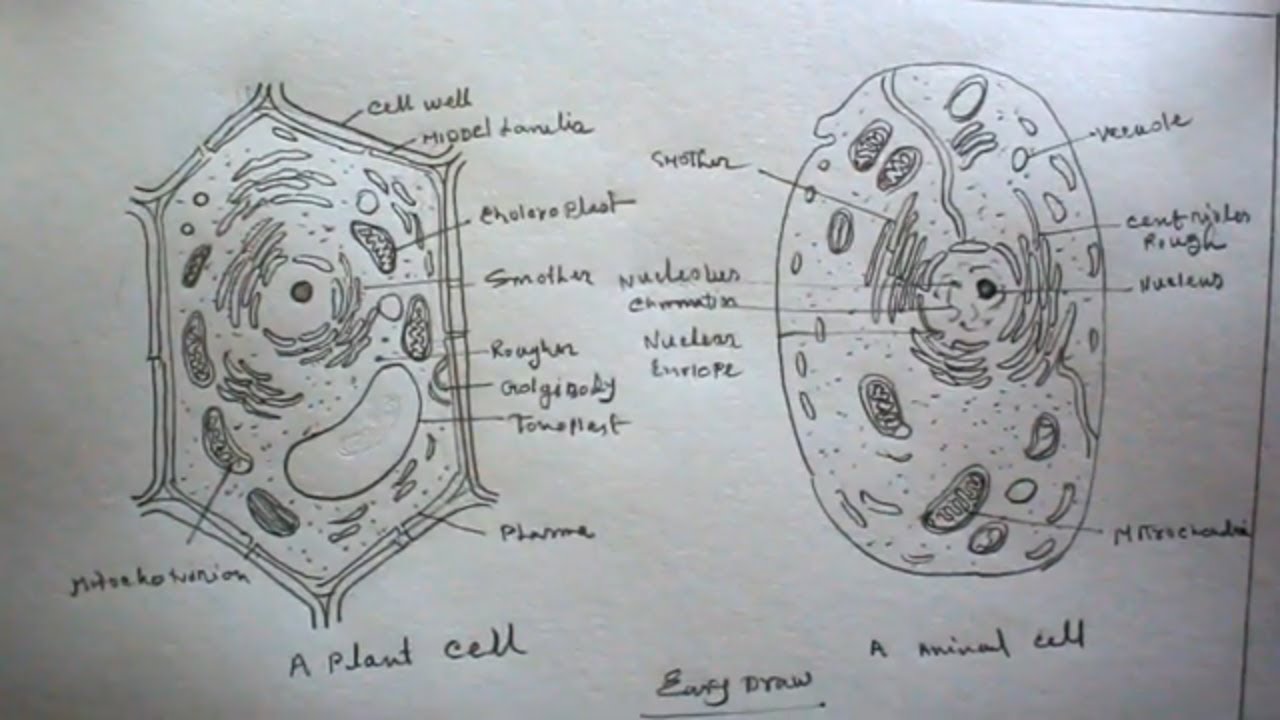 Cell well
MIDDEL Lamelia
Choloroplast
Smother
Rougher
Golgi Body
Tonoplast
Plasma
A Plant cell
Smother
Nucleolus
Nuclear
Vecuole
Centrioles
Rough
Nucleus
Mitrochondri
A Animal cell
Easy Draw